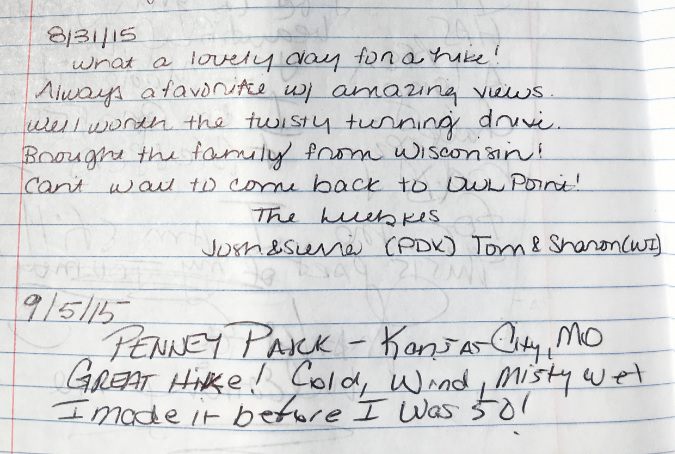 8/31/15
What a lovely day for a hike!
Always a favorite w/ amazing views.
Well worth the twisty turning drive.
Brought the family from Wisconsin!
Cant wait to come back to Owl Point!
The Luebkes
Josh & (PDX) Tom & Sharon (WI)
9/5/15
PENNEY PARK - Kansas City, MO
GREAT Hike! Cold, Wind, Misty Wet
I made it before I was 50!